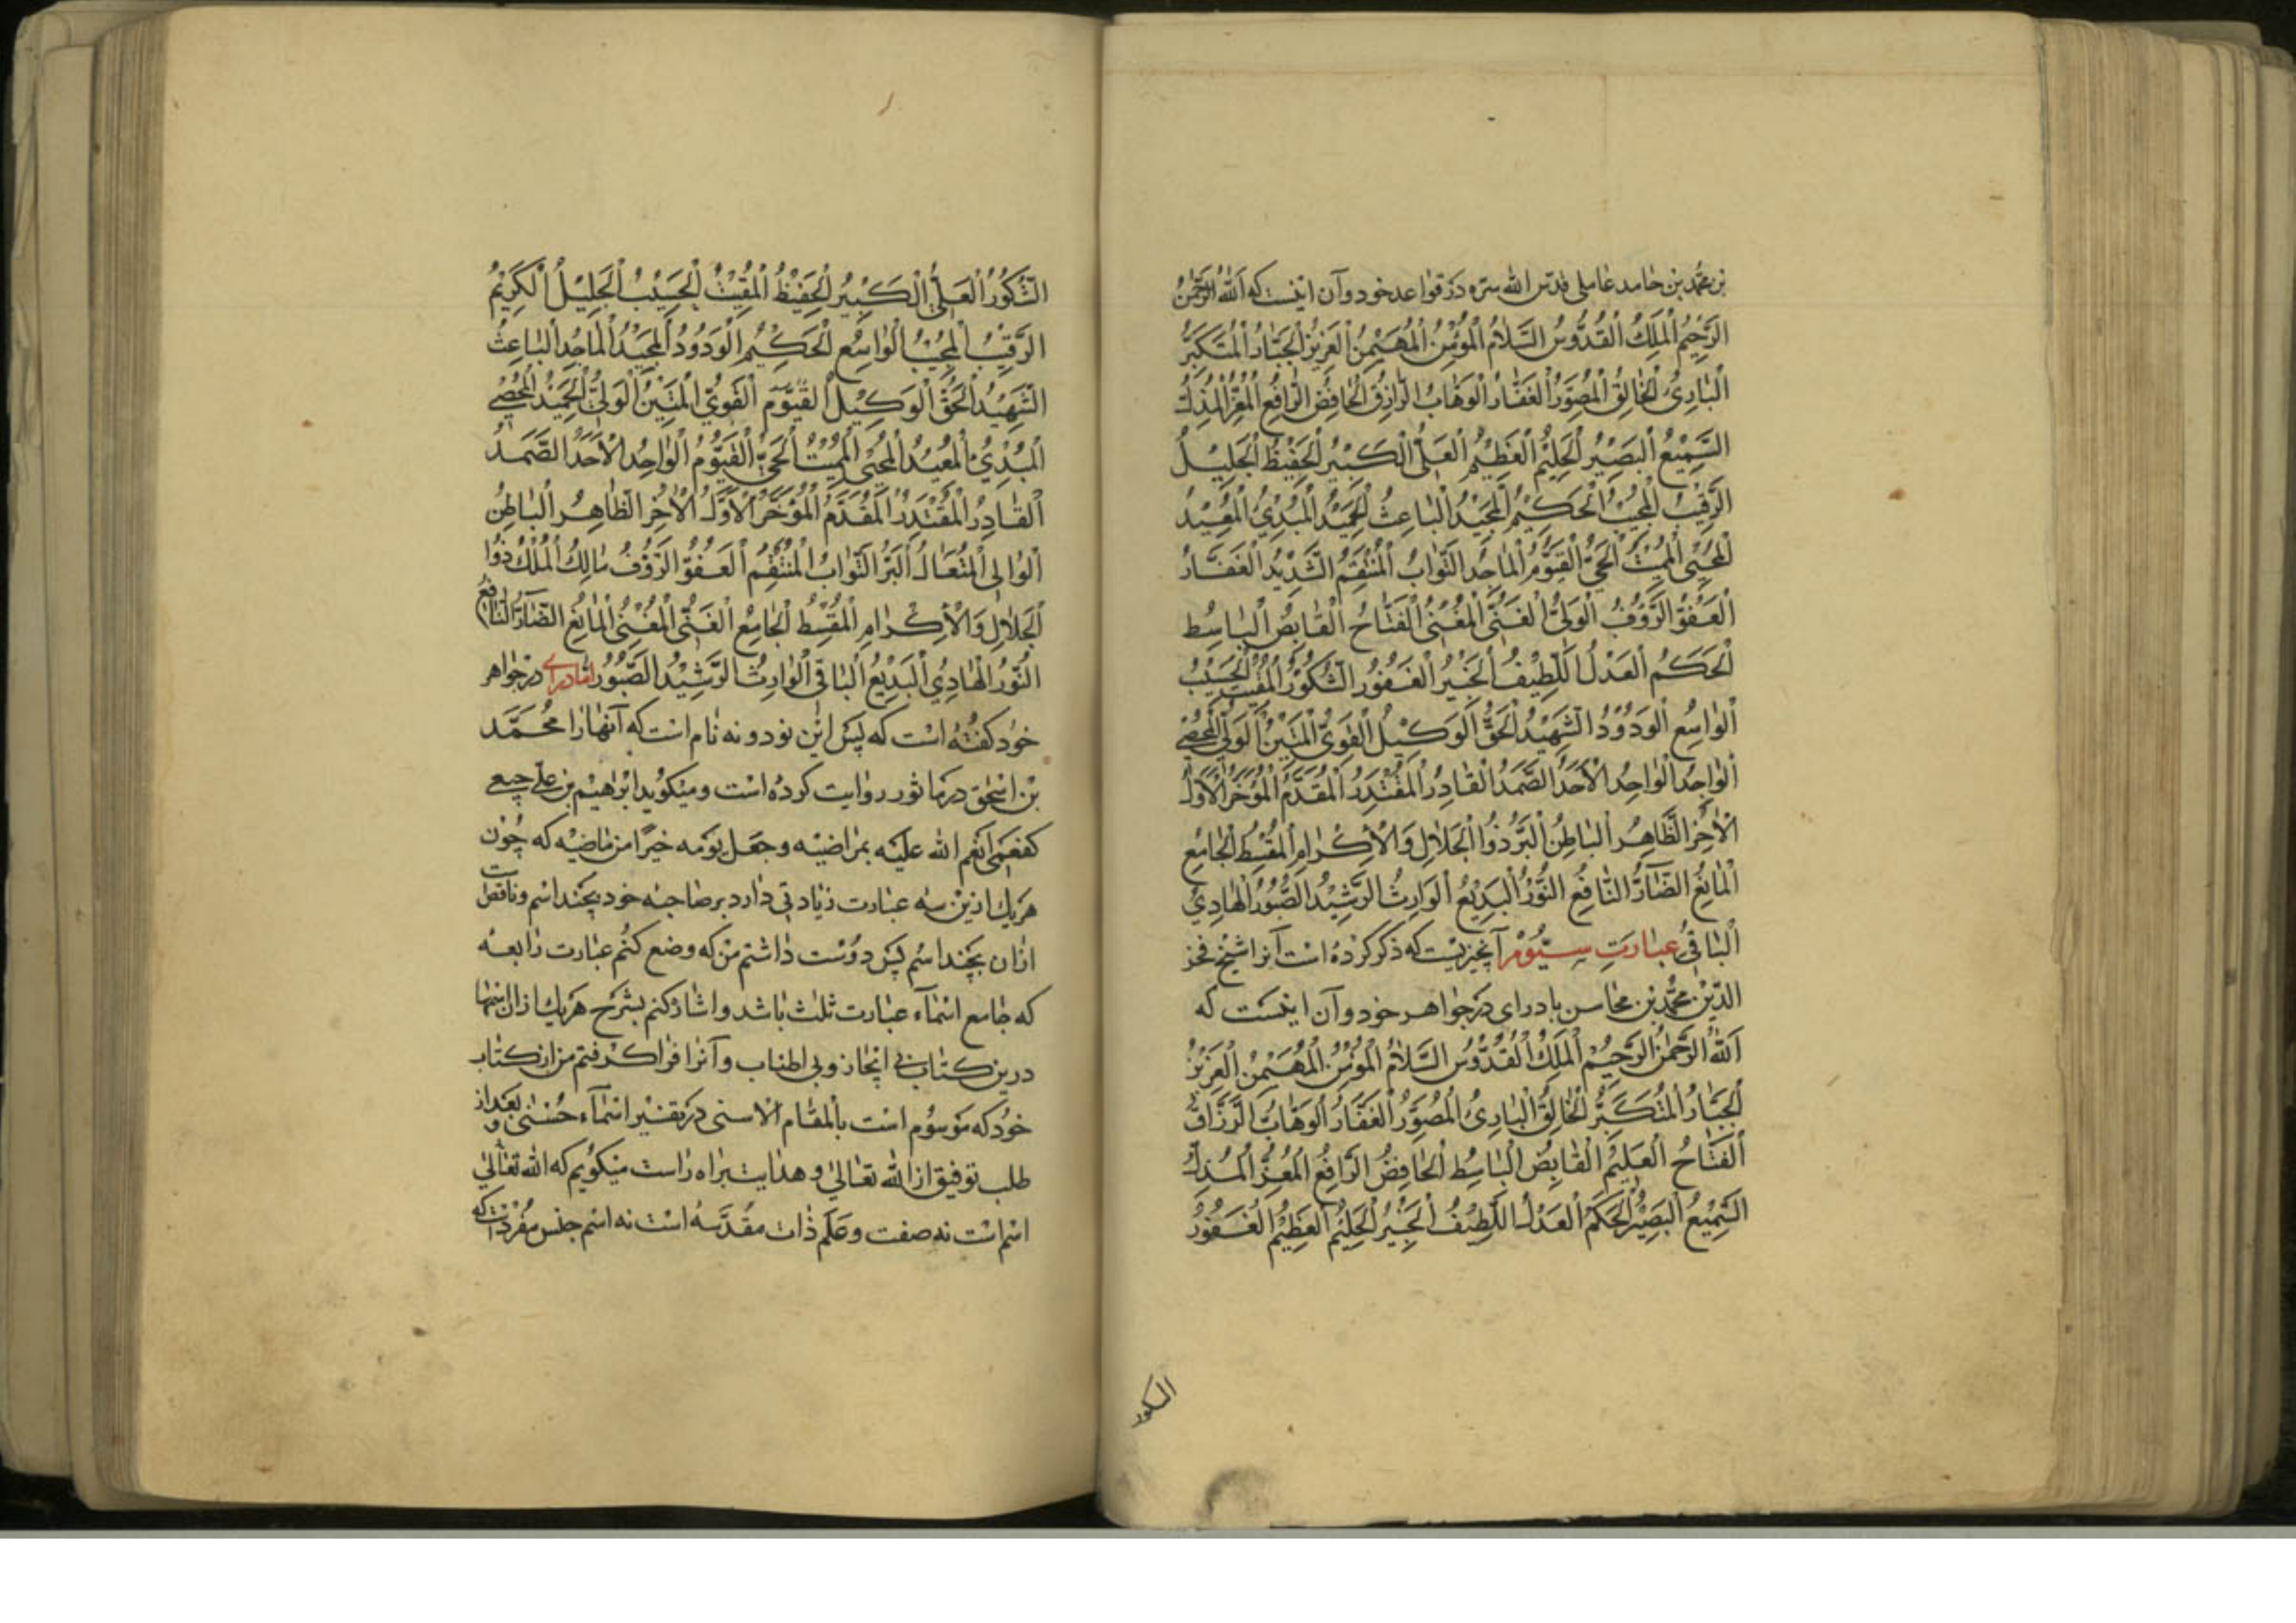 بن محمد بن حامد عاملی قدس الله سره در قواعد خود و آن اینست که الله الرحمن
الرَّحِيمُ الْمَلِكُ الْقُدُّوسُ السَّلَامُ الْمُؤْمِنُ الْمُهَيْمِنُ الْعَزِيزُ الْجَبَّارُ الْمُتَكَبِّرُ
الْبَارِئُ الْخَالِقُ الْمُصَوِّرُ الْغَفَّارُ الْوَهَّابُ الرَّازِقُ الْخَافِضُ الرَّافِعُ الْمُعِزُّ الْمُذِلُّ
السَّمِيعُ الْبَصِيرُ الْحَلِيمُ الْعَظِيمُ الْعَلِيُّ الْكَبِيرُ الْحَفِيظُ الْجَلِيلُ
الرَّقِيبُ الْمُجِيبُ الْحَكِيمُ الْمَجِيدُ الْبَاعِثُ الْحَمِيدُ الْمُبْدِئُ الْمُعِيدُ
الْمُحْيِي الْمُمِيتُ الْحَيُّ الْقَيُّومُ الْمَاجِدُ التَّوَّابُ الْمُنْتَقِمُ الشَّدِيدُ الْعَقَّابُ
الْعَفُوُّ الرَّؤُفُ الْوَلِيُّ الْغَنِيُّ الْمُغْنِي الْفَتَّاحُ الْقَابِضُ الْبَاسِطُ
الْحَكَمُ الْعَدْلُ اللَّطِيفُ الْخَبِيرُ الْغَفُورُ الشَّكُورُ الْمُقِيتُ الْحَسِيبُ
الْوَاسِعُ الْوَدُودُ الشَّهِيدُ الْحَقُّ الْوَكِيلُ الْقَوِيُّ الْمَتِينُ الْوَلِيُّ الْمُحْصِي
الْوَاجِدُ الْوَاحِدُ الْأَحَدُ الصَّمَدُ الْقَادِرُ الْمُقْتَدِرُ الْمُقَدِّمُ الْمُؤَخِّرُ الْأَوَّلُ
الْآخِرُ الظَّاهِرُ الْبَاطِنُ الْبَرُّ ذُو الْجَلَالِ وَالْإِكْرَامِ الْمُقْسِطُ الْجَامِعُ
الْمَانِعُ الضَّارُّ النَّافِعُ النُّورُ الْبَدِيعُ الْوَارِثُ الرَّشِيدُ الصَّبُورُ الْهَادِي
الْبَاقِي عبارت سیّوم آنچیزیست که ذکر کرده است آنرا شیخ فخر
الدین محمد بن محاسن بادرای در جواهر خود و آن اینست که
اللهُ الرَّحْمٰنُ الرَّحِيمُ الْمَلِكُ الْقُدُّوسُ السَّلَامُ الْمُؤْمِنُ الْمُهَيْمِنُ الْعَزِيزُ
الْجَبَّارُ الْمُتَكَبِّرُ الْخَالِقُ الْبَارِئُ الْمُصَوِّرُ الْغَفَّارُ الْوَهَّابُ الرَّزَّاقُ
الْفَتَّاحُ الْعَلِيمُ الْقَابِضُ الْبَاسِطُ الْخَافِضُ الرَّافِعُ الْمُعِزُّ الْمُذِلُّ
السَّمِيعُ الْبَصِيرُ الْحَكَمُ الْعَدْلُ اللَّطِيفُ الْخَبِيرُ الْحَلِيمُ الْعَظِيمُ الْغَفُورُ
الشكور
الشَّكُورُ الْعَلِيُّ الْكَبِيرُ الْحَفِيظُ الْمُقِيتُ الْحَسِيبُ الْجَلِيلُ الْكَرِيمُ
الرَّقِيبُ الْمُجِيبُ الْوَاسِعُ الْحَكِيمُ الْوَدُودُ الْمَجِيدُ الْمَاجِدُ الْبَاعِثُ
الشَّهِيدُ الْحَقُّ الْوَكِيلُ الْقَيُّومُ الْقَوِيُّ الْمَتِينُ الْوَلِيُّ الْحَمِيدُ الْمُحْصِي
الْمُبْدِئُ الْمُعِيدُ الْمُحْيِي الْمُمِيتُ الْحَيُّ الْقَيُّومُ الْوَاحِدُ الْأَحَدُ الصَّمَدُ
الْقَادِرُ الْمُقْتَدِرُ الْمُقَدِّمُ الْمُؤَخِّرُ الْأَوَّلُ الْآخِرُ الظَّاهِرُ الْبَاطِنُ
الْوَالِي الْمُتَعَالُ الْبَرُّ التَّوَّابُ الْمُنْتَقِمُ الْعَفُوُّ الرَّؤُفُ مَالِكُ الْمُلْكِ ذُو
الْجَلَالِ وَالْإِكْرَامِ الْمُقْسِطُ الْجَامِعُ الْغَنِيُّ الْمُغْنِي الْمَانِعُ الضَّارُّ النَّافِعُ
النُّورُ الْهَادِي الْبَدِيعُ الْبَاقِي الْوَارِثُ الرَّشِيدُ الصَّبُورُ در جواهر
خود گفته است که پس این نود و نه نام است که آنها را محمد
بن اسحق در ماثور روایت کرده است و میگوید ابرهیم بن علی جبعی
کفعمی انعم الله علیه بمراضیه و جعل یومه خیرا من ماضیه که چون
هر یك ازین سه عبارت زیادتی دارد بر صاحبه خود بچند اسم و ناقص است
ازان بچند اسم پس دوست داشتم من که وضع کنم عبارت رابعه
که جامع اسماء عبارت ثلث باشد و اشاره کنم بشرح هر یك ازان اسمها
درین کتاب بی ایجاز و بی اطناب و آنرا فرا گرفتم من از کتاب
خود که موسوم است بالمقام الاسنی در تفسیر اسماء حسنی و بعد از
طلب توفیق از الله تعالی و هدایت براه راست میگویم که الله تعالی
اسم است نه صفت و علم ذات مقدسه است نه اسم جنس مفردست که